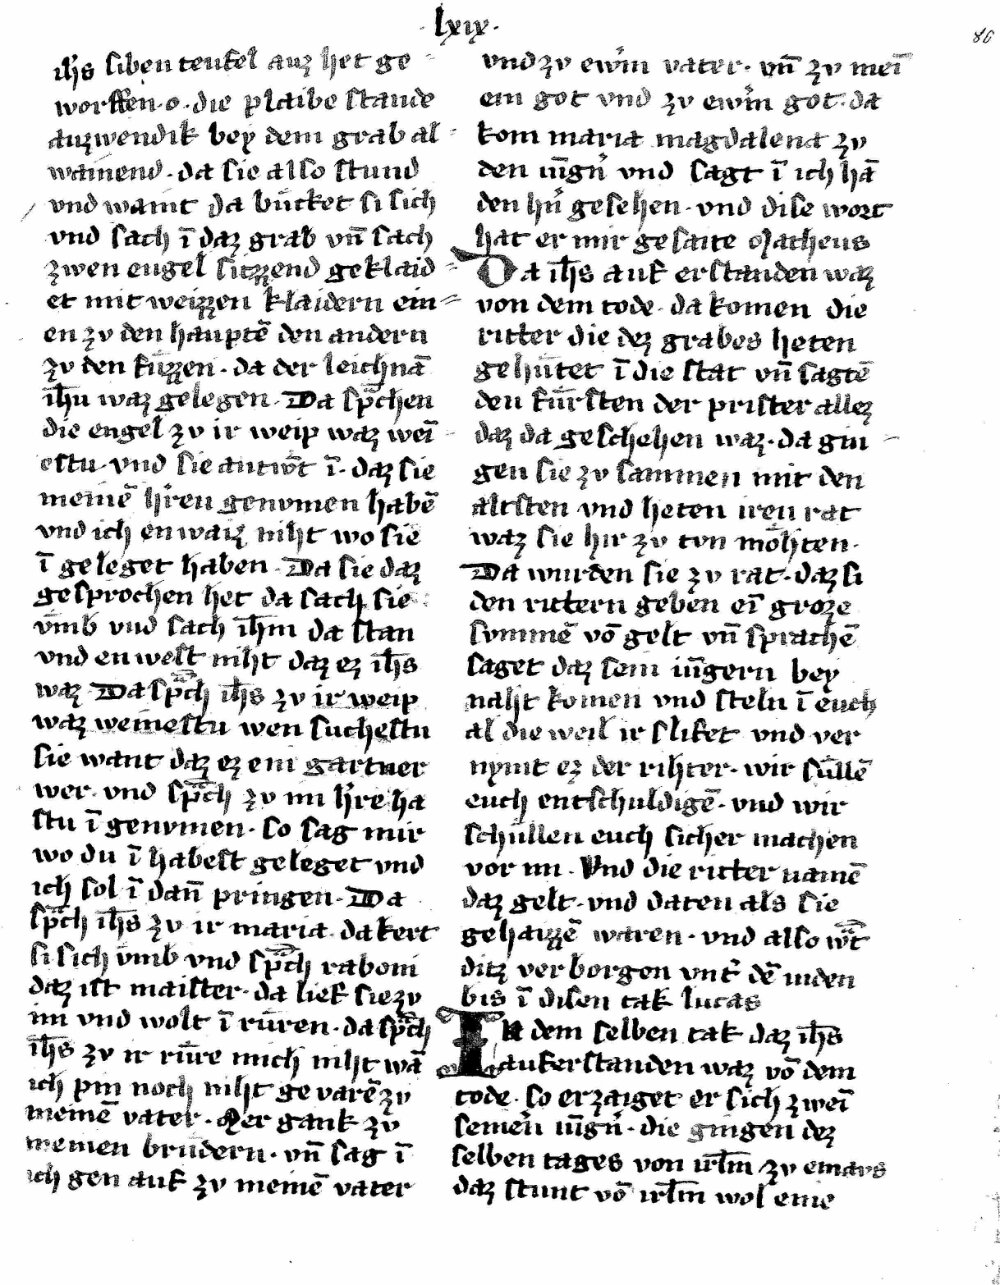 ·lxix·
86
ih̄s siben teufel auz het ge
worffen·o·die plaibe stunde
auzwendik bey dem grab al
wainend·da sie also stund
vnd waint da bucket si sich
vnd sach ī daz grab vn̄ sach
zwen engel sitzzend geklaid
et mit weizzen klaidern ein
en zv den hauptē den andern
zv den fuzzen·da der leichnā
ih̄u waz gelegen·Da sp̄chen
die engel zv ir weip waz wei
estu·vnd sie antwt̄ ī·daz sie
meinē hr̄en genvmen habē
vnd ich en waiz niht wo sie
ī geleget haben·Da sie daz
gesprochen het da sach sie
vmb vnd sach ih̄m da stan
vnd en west niht daz ez ih̄s
waz Da sp̄ch ih̄s zv ir weip
waz weinestu wen suchestu
sie want daz ez ein gartner
wer·vnd sp̄ch zv im hr̄e ha
stu ī genvmen·so sag mir
wo du ī habest geleget vnd
ich sol ī dan̄ pringen·Da
sp̄ch ih̄s zv ir maria·da kert
si sich vmb vnd sp̄ch raboni
daz ist maister·da lief sie zv
im vnd wolt ī rüren·da sp̄ch
ih̄s zv ir rüre mich niht wā
ich pin noch niht gevarē zv
meinē vater·Mer gank zv
meinen brüdern·vn̄ sag ī
ich gen auf zv meinē vater
vnd zv ewrm vater·vn̄ zv mei
em got vnd zv ewrm got·da
kom maria magdalena zv
den iūgn̄ vnd sagt ī ich hā
den hr̄n gesehen·vnd dise wort
hat er mir gesaite Matheus
Da ih̄s auf erstanden waz
von dem tode·da komen die
ritter die dez grabes heten
gehütet ī die stat vn̄ sagtē
den fürsten der prister allez
daz da geschehen waz·da gin
gen sie zv sammen mit den
altsten vnd heten iren rat
waz sie hir zv tvn möhten·
Da wurden sie zv rat·daz si
den rittern geben eī groze
summē vō gelt vn̄ sprachē
saget daz sein iūgern bey
naht komen vnd steln ī euch
al die weil ir slifet vnd ver
nymt ez der rihter·wir süllē
euch entschuldigē·vnd wir
schüllen euch sicher machen
vor im·Vnd die ritter namē
daz gelt·vnd daten als sie
gehaizzē waren·vnd also wt̄
ditz verborgen vnt̄ dē iuden
bis ī disen tak lucas
In dem selben tak daz ih̄s
auferstanden waz vō dem
tode·so erzaiget er sich zwei
seinen iūgn̄·die gingen dez
selben tages von irl̄m zv emavs
daz stunt vō irl̄m wol eine